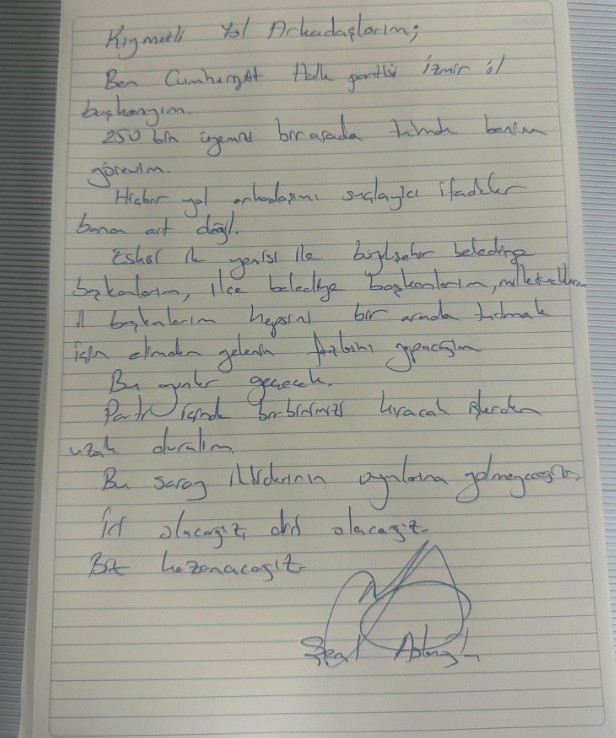 Kıymetli Yol Arkadaşlarım;
Ben Cumhuriyet Halk partisi İzmir il
başkanıyım.
250 bin üyemizi bir arada tutmak benim
görevim.
Hiçbir yol arkadaşımı suçlayıcı ifadeler
bana ait değil.
Eskisi ile yenisi ile büyükşehir belediye
başkanlarım, ilçe belediye başkanlarım, milletvekillerim
il başkanlarım hepsini bir arada tutmak
için elimden gelenin fazlasını yapacağım
Bu günler geçecek.
Parti içinde birbirimizi kıracak işlerden
uzak duralım
Bu saray oyunlarına gelmeyeceğiz.
İri olacağız, diri olacağız.
Biz kazanacağız.
Şenol Aslanoğlu